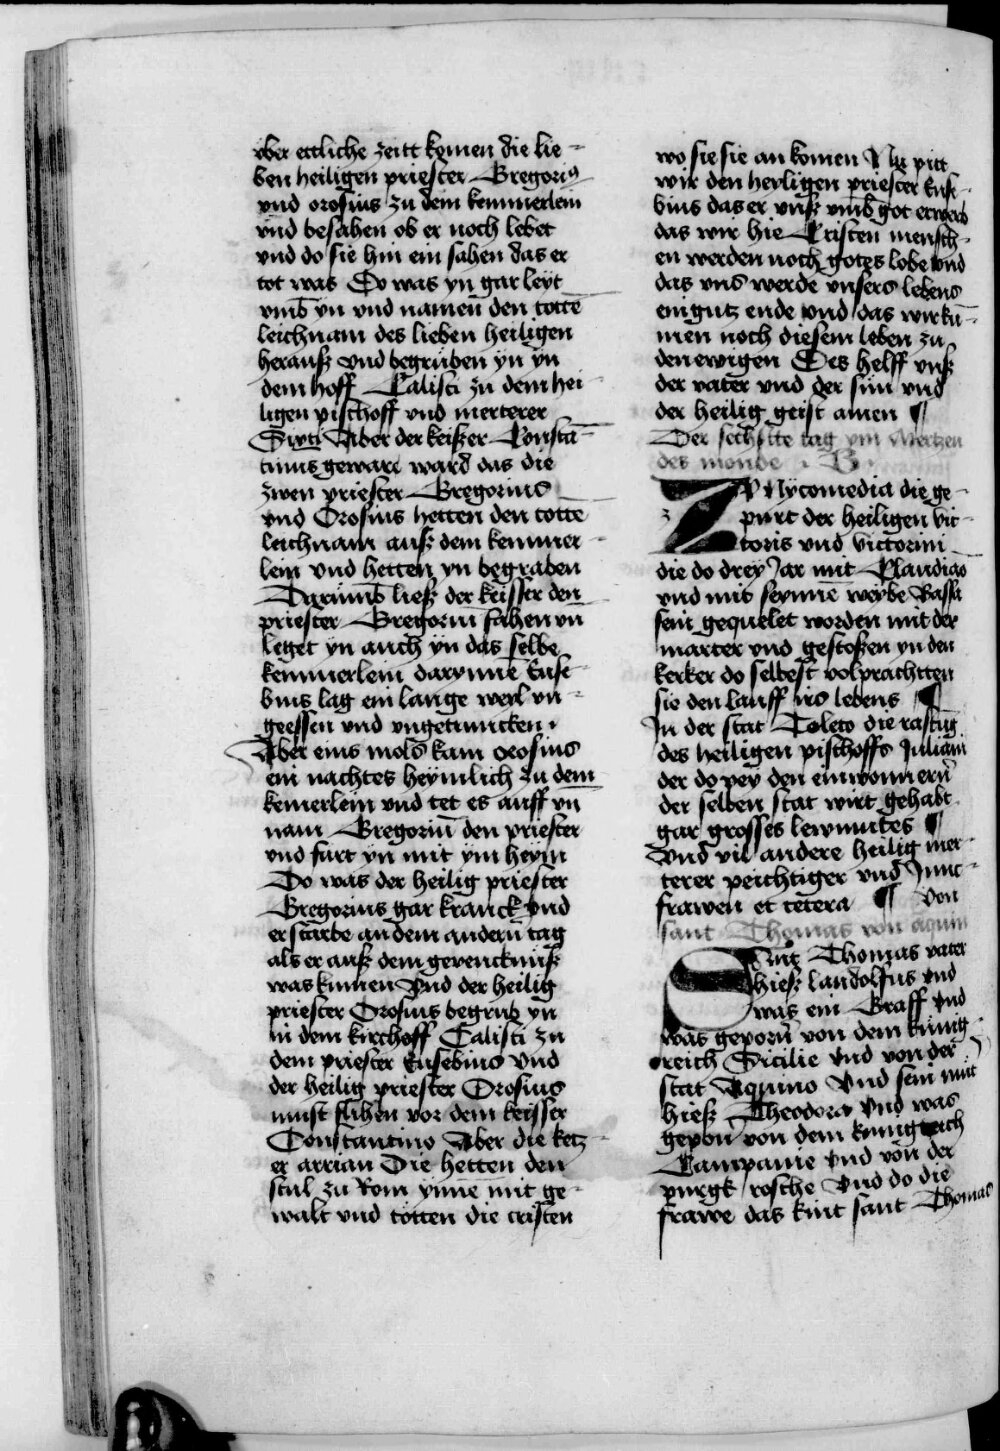 vber ettliche zeitt komen die lie-
ben heiligen priester Gregorius
vnd orosius zu dem kemmerlein
vnd besahen ob er noch lebet
vnd do sie hin ein sahen das er
tot was Do was yn gar leyt
vmb yn vnd namen den totte
leichnam des lieben heiligen
herausz vnd begruben yn yn
dem hoff Calisti zu dem hei-
ligen pischoff vnd merterer
Sixti Aber der keiszer Constā-
tinus gewarr ward das die
zwen priester Gregorius
vnd Orosius hetten den totte
leichnam ausz dem kemmer-
lein vnd hetten yn begraben
Darumb liesz der keisser den
priester Gregoriū fahen vn̄
leget yn auch yn das selbe
kemmerlein darynnē Euse-
bius lag ein lange weyl vn-
geessen vnd vngetruncken
Aber eins mols kam orosius
ein nachtes heymlich zu dem
kemerlein vnd tet es auff vn̄
nam Gregoriū den priester
vnd furt yn mit ym heym
Do was der heilig priester
Gregorius gar kranck vnd
er starbe an dem andern tag
als er ausz dem gevencknusz
was kumen Vnd der heilig
priester Orosius begrub yn
in dem kirchoff Calisti zu
dem priester Eusebius vnd
der heilig priester Orosius
must flihen vor dem keisser
Constantino Aber die ketz-
er arrian Die hetten den
stul zu Rom ynne mit ge-
walt vnd totten die cristen
wo sie sie an komen Nu pitt
wir den heyligen priester Euse-
bius das er vnsz vmb got erwerb
das wir hie Cristen mensch-
en werden noch gotes lobe vnd
das vns werde vnsers lebens
ein gutz ende vnd das wir kū-
men noch diesem leben zu
den ewigen Des helff vnsz
der vater vnd der sun vnd
der heilig geist amen ¶
Der sechste tag ym Mertzen
des monde . B .
ZV Nycomedia die ge-
purt der heiligen vic-
toris vnd victorini
die do drey Jar mit Claudiao
vnd mit seynnē weybe Bassa
sein gequelet worden mit der
marter vnd gestoszen yn den
kerker do selbest volprachtten
sie den lauff irs lebens ¶
In der stat Toleto die rastūg
des heiligen pischoffs Juliani
der do pey den einwonnern
der selben stat wirt gehabt
gar grosses lewmutes ¶
Vnd vil andere heilig mer-
terer peichtiger vnd Junc-
frawen et cetera ¶ Von
sant Thomas von aquin
Sant Thomas vater
hiesz landolfus vnd
was ein Graff vnd
was geporn von dem kunig-
reich Sicilie vnd von der
stat Aquino Vnd sein mut
hiesz Theodora vnd was
geporn von dem kunigreich
Campanie vnd von der
purgk rosche Vnd do die
frawe das kint sant Thomas